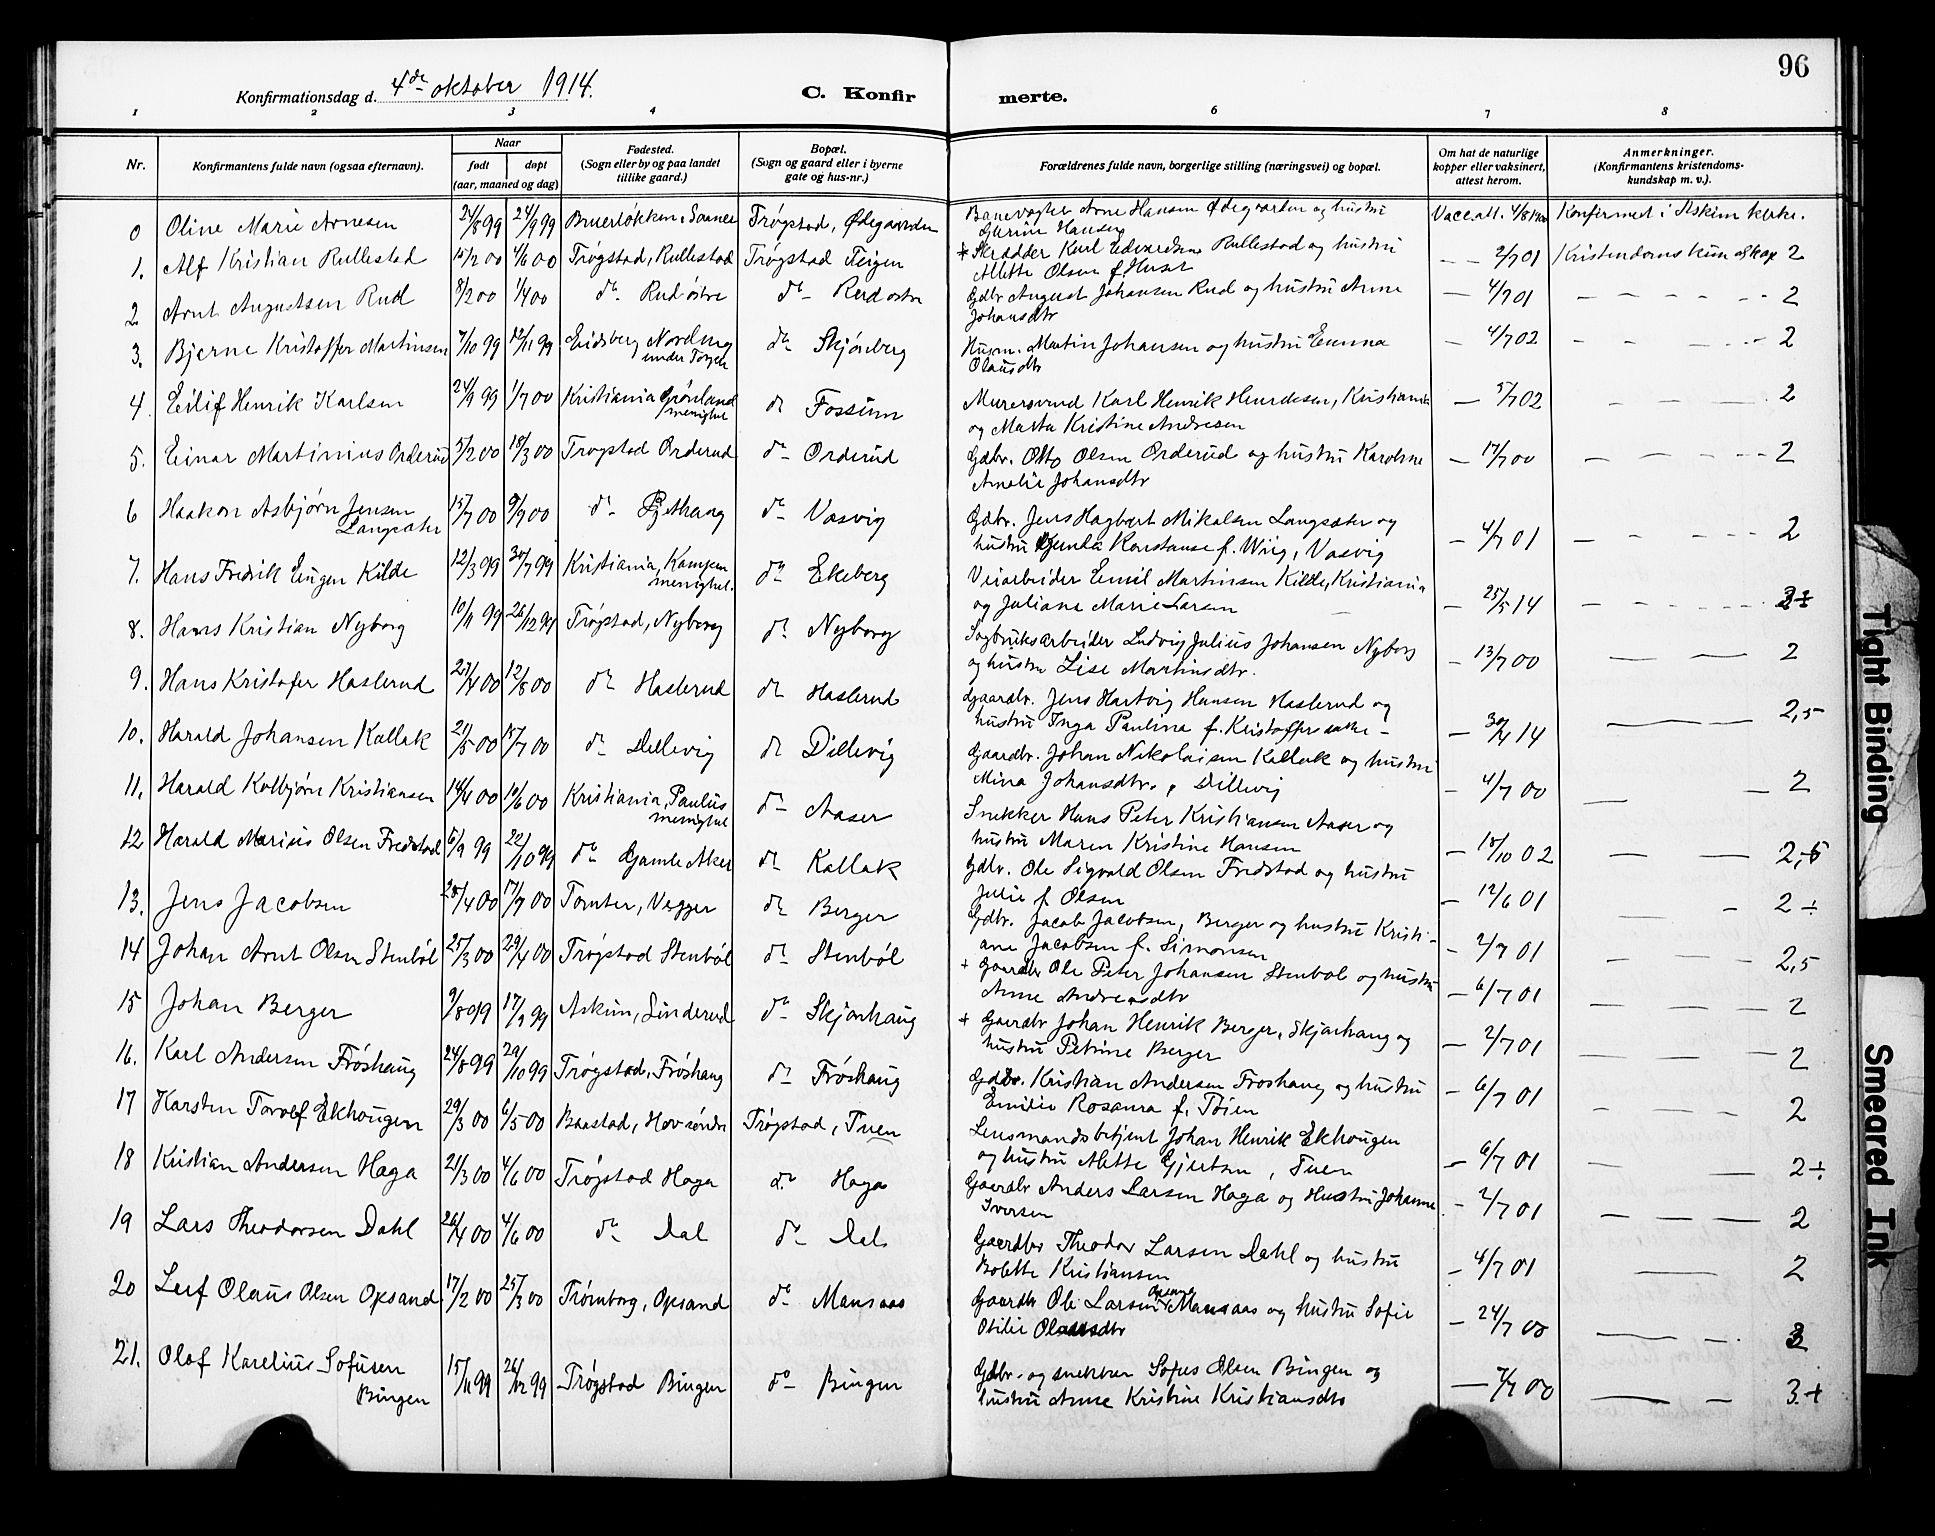 96
Konfirmationsdag d. 4de oktober 1914.
C. Konfir merte.
1 2 3 4 5 6 7 8
Nr. Konfirmantens fulde navn (ogsaa efternavn). Naar født døpt (aar, maaned og dag) Fødested. (Sogn eller by og paa landet tillike gaard.) Bopæl. (Sogn og gaard eller i byerne gate og hus-nr.) Forældrenes fulde navn, borgerlige stilling (næringsvei) og bopæl. Om hat de naturlige kopper eller vaksinert, attest herom. Anmerkninger. (Konfirmantens kristendoms-kundskap m. v.).
0 Oline Marie Arnesen 24/8 99 24/9 99 Trøgstad, Ødegaarden Banevogter Arne Hansen Ødegaarden og hustru Hansen Vacc.att. Konfirmert i Askim kirke.
1. Alf Kristian Rullestad 15/2 00 4/6 00 Trøgstad, Rullestad Trøgstad Feigen * Skrædder Karl Edvardsen Rullestad og hustru Alette Olsen f. Huset - - 2/7 01 Kristendomskundskap 2
2 Arnt Augustsen Rud 8/2 00 1/4 00 do- Rud østre do- Rud østre Gdbr August Johansen Rud og hustru Anne Johansdtr - 4/7 01 - - - - - 2
3. Bjerne Kristoffer Martinsen 7/10 99 12/11 99 Eidsberg Nordeng under Torper do- Skjønberg Husm. Martin Johansen og hustru Emma Olausdtr - 4/7 02 - - - - 2
4. Eilif Henrik Karlsen 24/9 99 1/7 00 Kristiania Grønland menighet do Fossum Murersvend Karl Henrik Henriksen, Kristiania og Marta Kristine Andresen - 5/7 02 - - - - 2
5. Einar Martinius Orderud 5/2 00 18/3 00 Trøgstad Orderud do- Orderud Gdbr. Otto Olsen Orderud og hustru Karoline Amelie Johansdtr - 17/7 00 - - - - 2
6 Haakon Asbjørn Jensen Langsæter 15/7 00 9/9 00 do- do- Vasvig Gdbr. Jens Hagbart Mikalsen Langsæter og hustru Gunda Konstanse f. Wiig, Vasvig - 4/7 01 - - - - 2
7. Hans Fredrik Eugen Kilde 12/3 99 30/7 99 Kristiania, Kampen menighet. do- Ekeberg Veiarbeider Emil Martinsen Kilde, Kristiania og Juliane Marie Larsen - 25/5 14 - - - -
8. Hans Kristian Nyborg 10/11 99 26/12 99 Trøgstad, Nyborg do- Nyborg Sagbruksarbeider Ludvig Julius Johansen Nyborg og hustru Lise Martinsdtr. - 13/7 00 - - 2
9. Hans Kristofer Haslerud 27/4 00 12/8 00 do- Haslerud do- Haslerud Gaardbr. Jens Hartvig Hansen Haslerud og hustru Inga Pauline f. - 30/4 14 - - 2,5
10. Harald Johansen Kallak 21/5 00 15/7 00 do- Dillevig do- Dillevig Gaardbr. Johan Nikolaisen Kallak og hustru Mina Johansdtr., Dillevig - 4/7 00 - - 2
11. Harald Kolbjørn Kristiansen 14/4 00 10/6 00 Kristiania, Paulus menighet do- Aaser Snekker Hans Peter Kristiansen Aaser og hustru Maren Kristine Hansen - 18/10 02 - - 2,5
12 Harald Marius Olsen Fredstad 5/9 99 22/10 99 do- Gamle Aker do- Kallak Gdbr. Ole Sigvald Olsen Fredstad og hustru Julie f. Olsen - 12/6 01 - - 2 ÷
13. Jens Jacobsen 28/4 00 17/7 00 Tomter, Vegger do- Berger Gdbr. Jacob Jacobsen, Berger og hustru Kristiane Jacobsen f. Simonsen - 2/7 01 - - 2,5
14 Johan Arnt Olsen Stenbøl 25/3 00 29/4 00 Trøgstad Stenbøl do- Stenbøl + Gaardbr Ole Peter Johansen Stenbøl og hustru Anne Andreasdtr - 6/7 01 - - 2
15 Johan Berger 9/8 99 17/9 99 Askim, Linderud do- Skjønhaug + Gaardbr Johan Henrik Berger, Skjønhaug og hustru Petrine Berger - 2/7 01 - - - 2
16. Karl Andersen Frøshaug 24/8 99 29/10 99 Trøgstad, Frøshaug do- Frøshaug Gdbr. Kristian Andersen Frøshaug og hustru Emilie Rosanra f. Tøien - 6/7 01 - - - 2
17 Karsten Torolf Ekhougen 29/3 00 6/5 00 Baastad, Hov søndre Trøgstad, Tuen Lensmandsbetjent Johan Henrik Ekhougen og hustru Alette Gjertsen, Tuen - 6/7 01 - - 2 ÷
18 Kristian Andersen Haga 21/3 00 4/6 00 Trøgstad Haga do- Haga Gaardbr Anders Larsen Haga og Hustru Johanne Iversen - 2/7 01 - - - 2
19 Lars Theodorsen Dahl 26/4 00 4/6 00 do- Dal do- Dal Gaardbr Theodor Larsen Dahl og hustru Bolette Kristiansen - 4/7 01 - 2
20 Leif Olaus Olsen Opsand 17/2 00 25/3 00 Trømborg, Opsand do- Mansaas Gaardbr Ole Larsen Mansaas og hustru Sofie Otilie Olausdtr - 24/7 00 - -
21. Olaf Karelius Sofusen Bingen 15/11 99 26/12 99 Trøgstad Bingen do- Bingen Gdbr. og snekker Sofus Olsen Bingen og hustru Anne Kristine Kristiansdtr - 7/7 00 - - 3.+
Tight Binding
Smeared Ink